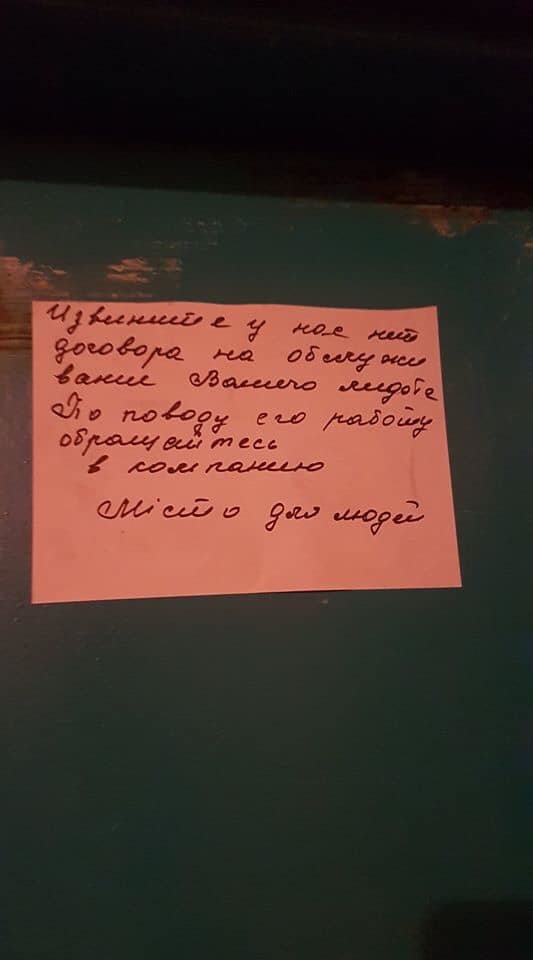 Извините у нас нет
договора на обслужи
вание Вашего лифта
По поводу его работы
обращайтесь
в компанию
Місто для людей